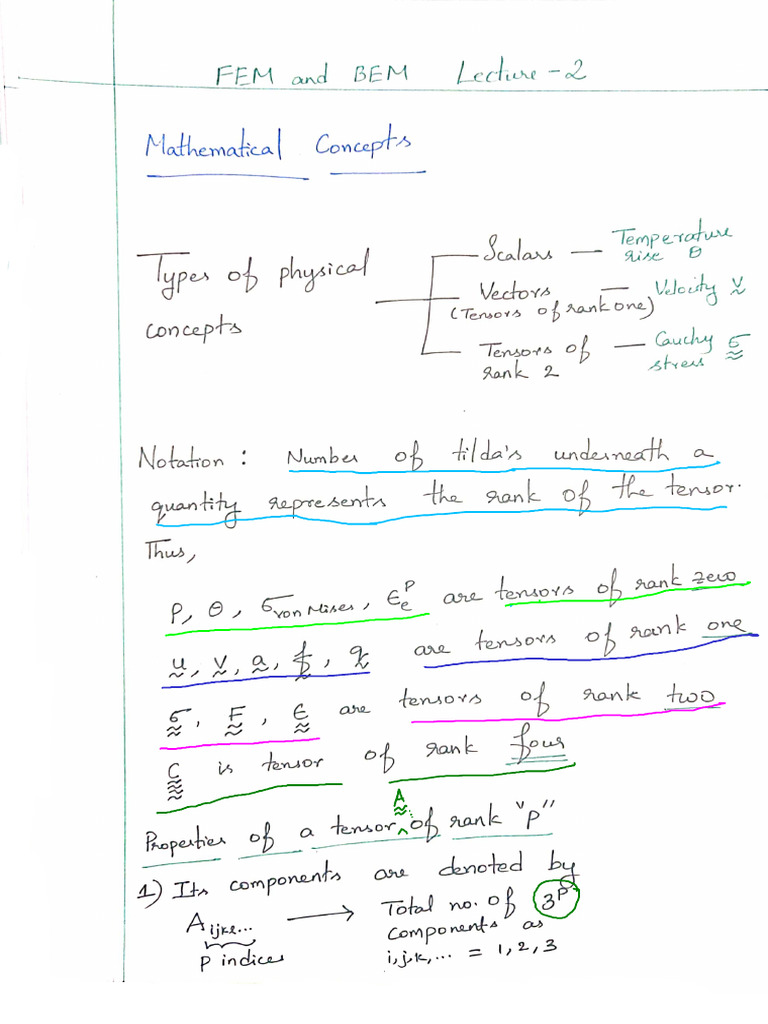 FEM and BEM Lecture - 2
Mathematical Concepts
Types of physical concepts
Scalars — Temperature rise θ
Vectors (Tensors of rank one) — Velocity v̰
Tensors of rank 2 — Cauchy stress σ̰̰
Notation : Number of tilda's underneath a
quantity represents the rank of the tensor.
Thus,
P, θ, σ_von Mises, ϵ_e^P are tensors of rank zero
ṵ, v̰, a̰, f̰, q̰ are tensors of rank one
σ̰̰, F̰̰, ϵ̰̰ are tensors of rank two
C̰̰̰̰ is tensor of rank four
Properties of a tensor A̰̰ of rank "p"
1) Its components are denoted by
A_ijkl... → Total no. of 3^P
components as
p indices i,j,k,... = 1, 2, 3